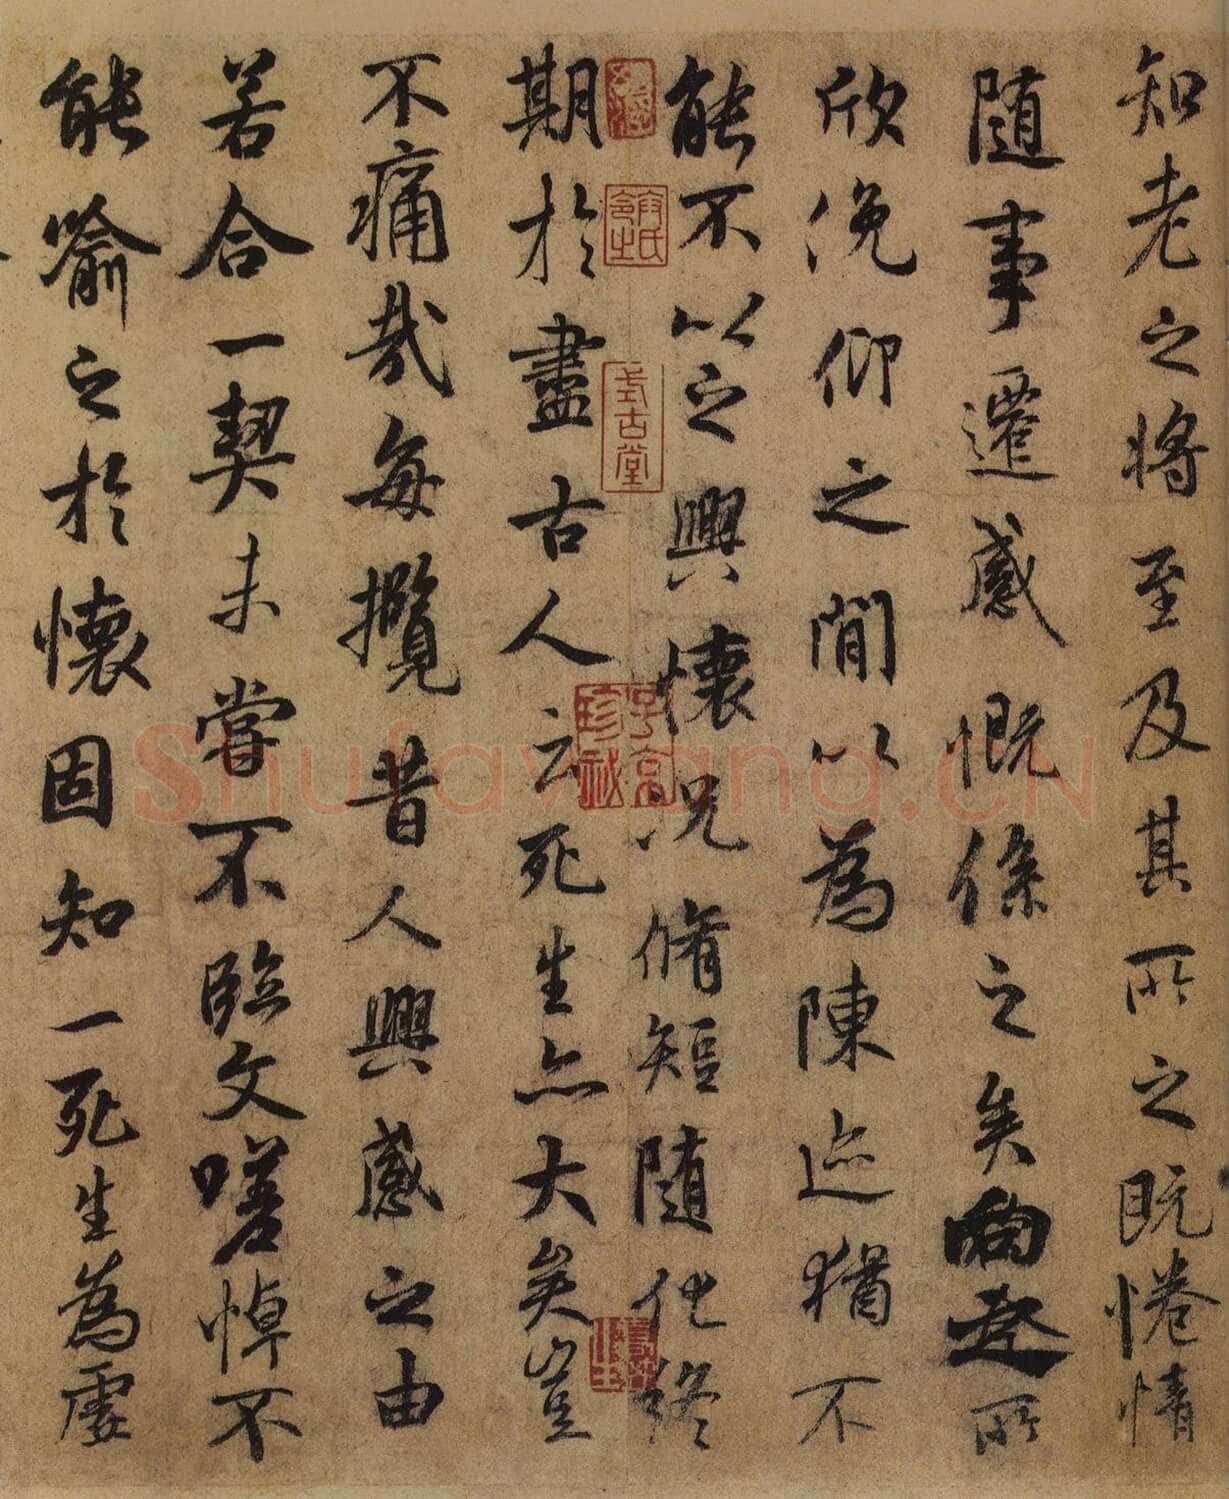 知老之將至及其所之既惓情
隨事遷感慨係之矣向之所
欣俛仰之閒以為陳迹猶不
能不以之興懷況脩短隨化終
期於盡古人云死生亦大矣豈
不痛哉每攬昔人興感之由
若合一契未嘗不臨文嗟悼不
能喻之於懷固知一死生為虛
式古堂
子京
珍祕
Shufawang.CN